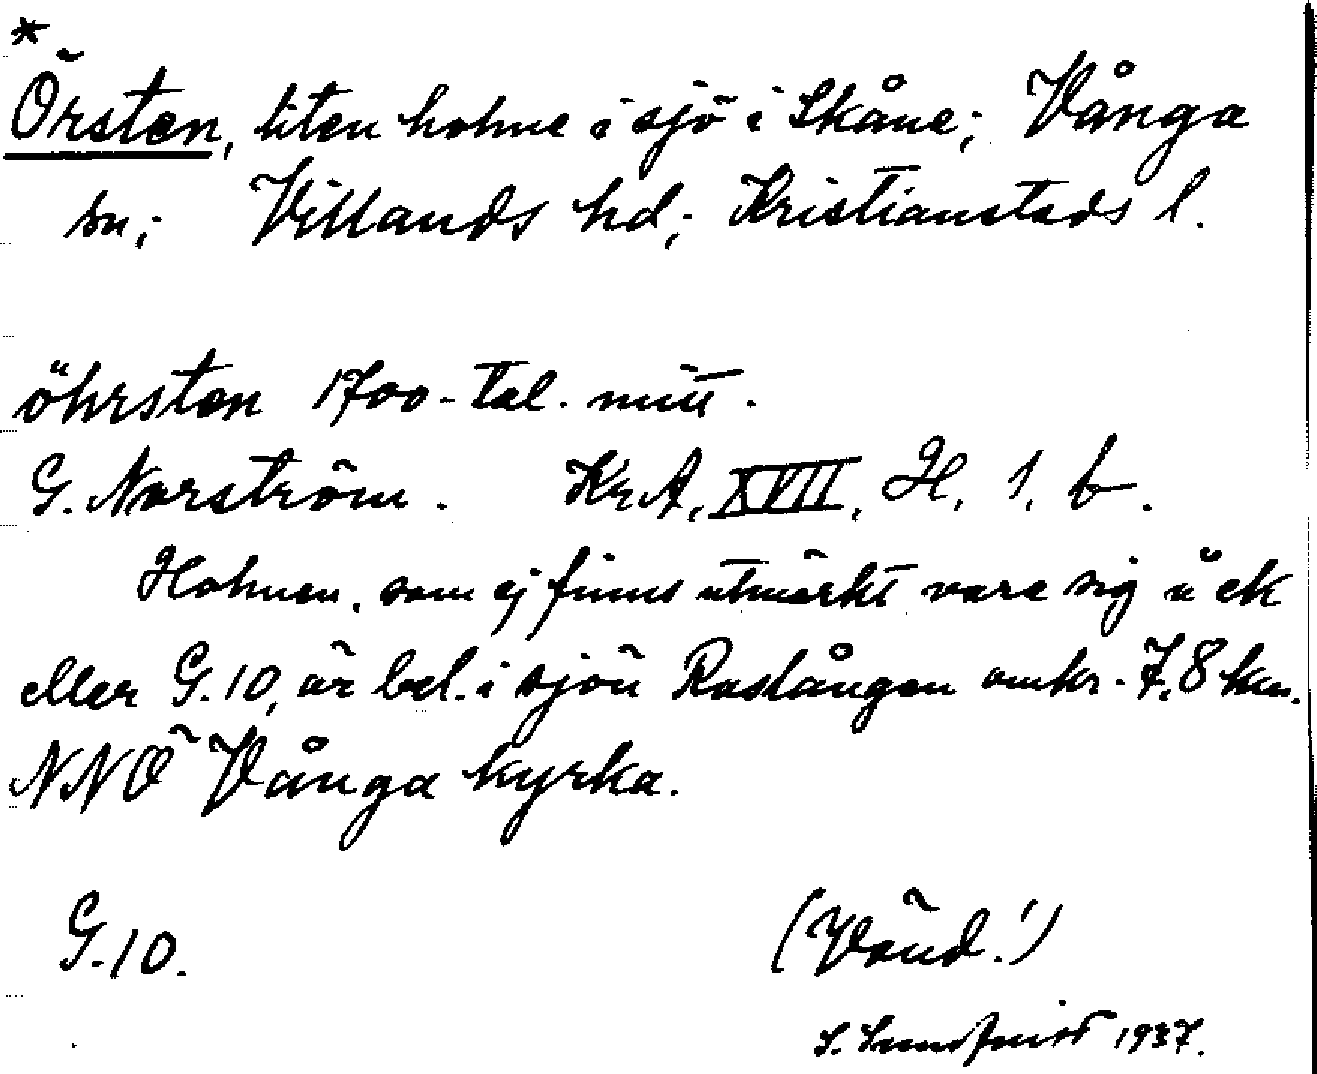 *
Örsten, liten holme i sjö i Skåne; Vånga
sn; Villands hd; Kristianstads l.
öhrsten 1700-tal. mitt.
G. Norström. KrA, XVII, H. 1. b.
Holmen, som ej finns utmärkt vare sig å ek
eller G.10, är bel. i sjön Raslången omkr. 7,8 km.
NNÖ Vånga kyrka.
G.10.
(Vänd!)
S. 1937.